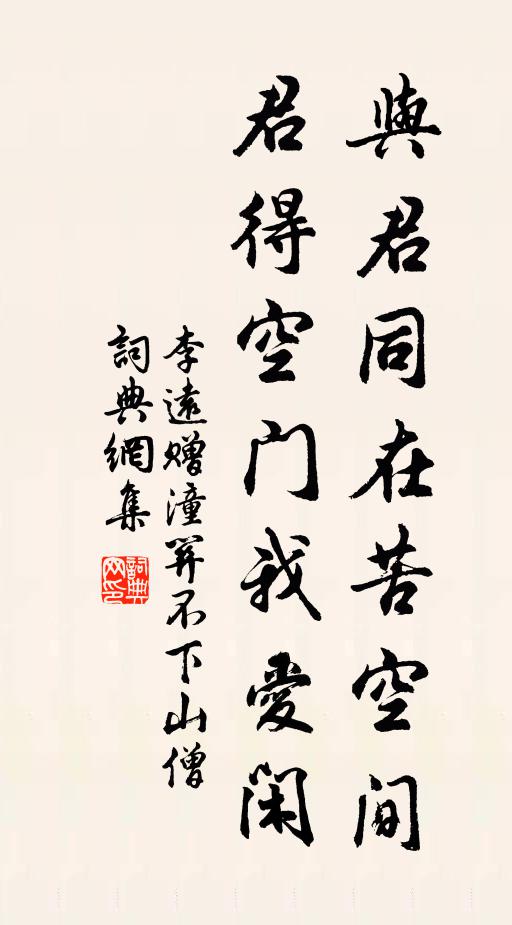 與君同在苦空间
君得空门我愛閑
李遠赠潼關不下山僧
詞典網集
詞典網印